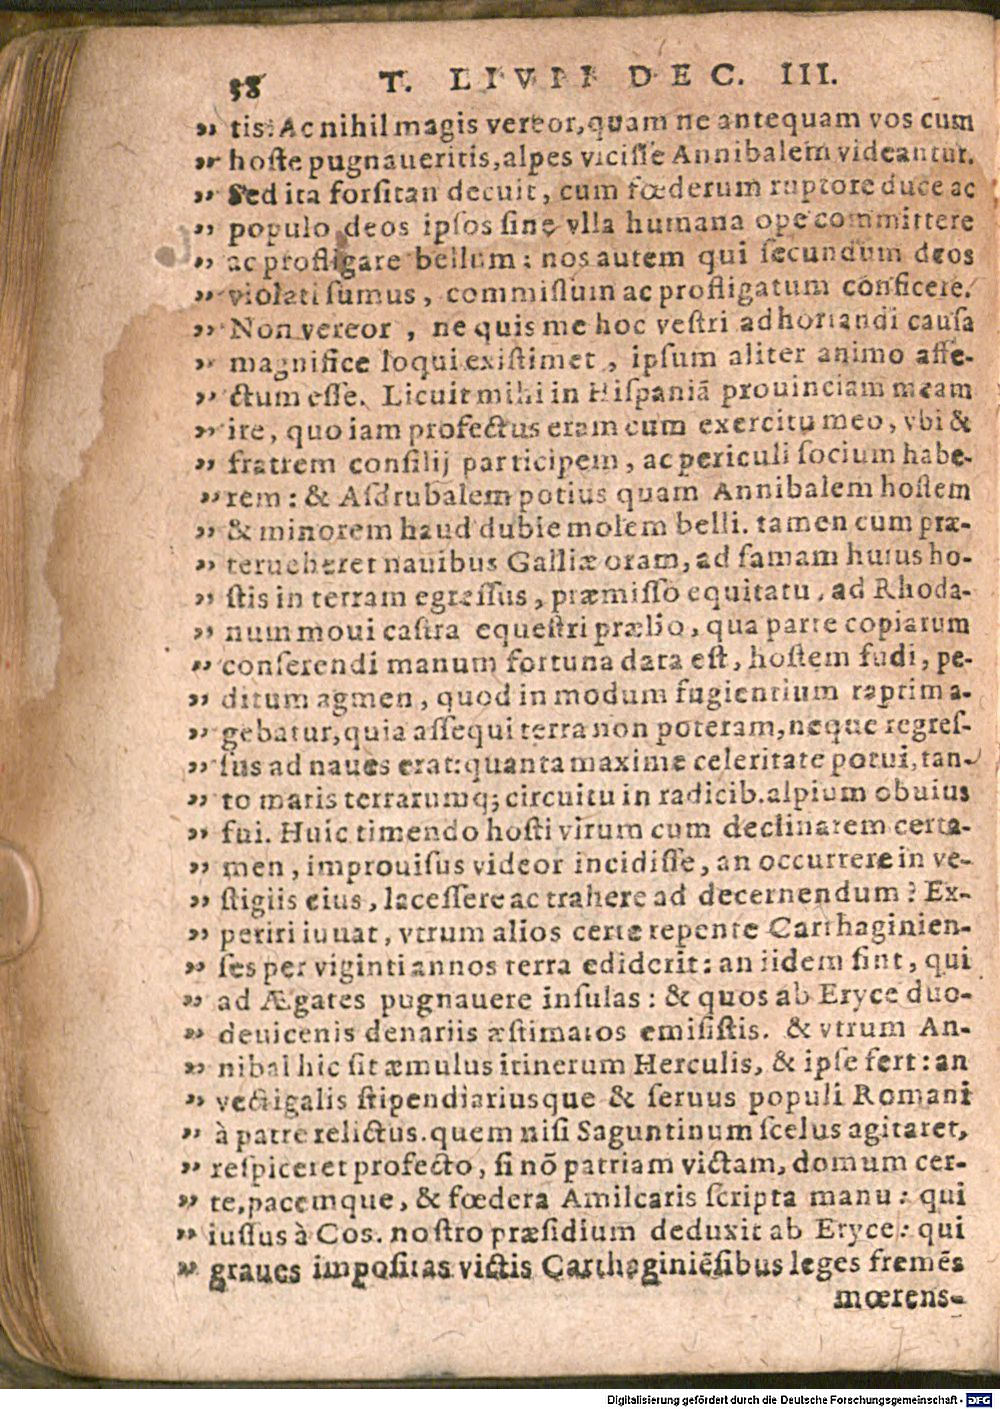 38 T. LIVII DEC. III.
„ tis: Ac nihil magis vereor, quam ne antequam vos cum
„ hoſte pugnaueritis, alpes viciſſe Annibalem videantur.
„ Sed ita forſitan decuit, cum fœderum ruptore duce ac
„ populo deos ipſos ſine vlla humana ope committere
„ ac profligare bellum: nos autem qui ſecundum deos
„ violati ſumus, commiſſum ac profligatum conficere.
„ Non vereor, ne quis me hoc veſtri adhortandi cauſa
„ magnifice loqui exiſtimet, ipſum aliter animo affe-
„ ctum eſſe. Licuit mihi in Hiſpaniã prouinciam meam
„ ire, quo iam profectus eram cum exercitu meo, vbi &
„ fratrem conſilij participem, ac periculi ſocium habe-
„ rem: & Aſdrubalem potius quam Annibalem hoſtem
„ & minorem haud dubie molem belli. tamen cum præ-
„ terueheret nauibus Galliæ oram, ad famam huius ho-
„ ſtis in terram egreſſus, præmiſſo equitatu, ad Rhoda-
„ num moui caſtra equeſtri prælio, qua parte copiarum
„ conferendi manum fortuna data eſt, hoſtem fudi, pe-
„ ditum agmen, quod in modum fugientium raptim a-
„ gebatur, quia aſſequi terra non poteram, neque regreſ-
„ ſus ad naues erat: quanta maxime celeritate potui, tan-
„ to maris terrarumq; circuitu in radicib. alpium obuius
„ fui. Huic timendo hoſti virum cum declinarem certa-
„ men, improuiſus videor incidiſſe, an occurrere in ve-
„ ſtigiis eius, laceſſere ac trahere ad decernendum? Ex-
„ periri iuuat, vtrum alios certe repente Carthaginien-
„ ſes per viginti annos terra ediderit: an iidem ſint, qui
„ ad Ægates pugnauere inſulas: & quos ab Eryce duo-
„ deuicenis denariis æſtimatos emiſiſtis. & vtrum An-
„ nibal hic ſit æmulus itinerum Herculis, & ipſe fert: an
„ vectigalis ſtipendiariusque & ſeruus populi Romani
„ à patre relictus. quem niſi Saguntinum ſcelus agitaret,
„ reſpiceret profecto, ſi nõ patriam victam, domum cer-
„ te, pacemque, & fœdera Amilcaris ſcripta manu: qui
„ iuſſus à Coſ. noſtro præſidium deduxit ab Eryce: qui
„ graues impoſitas victis Carthaginiẽſibus leges fremẽs
mœrens-
Digitalisierung gefördert durch die Deutsche Forschungsgemeinschaft - DFG